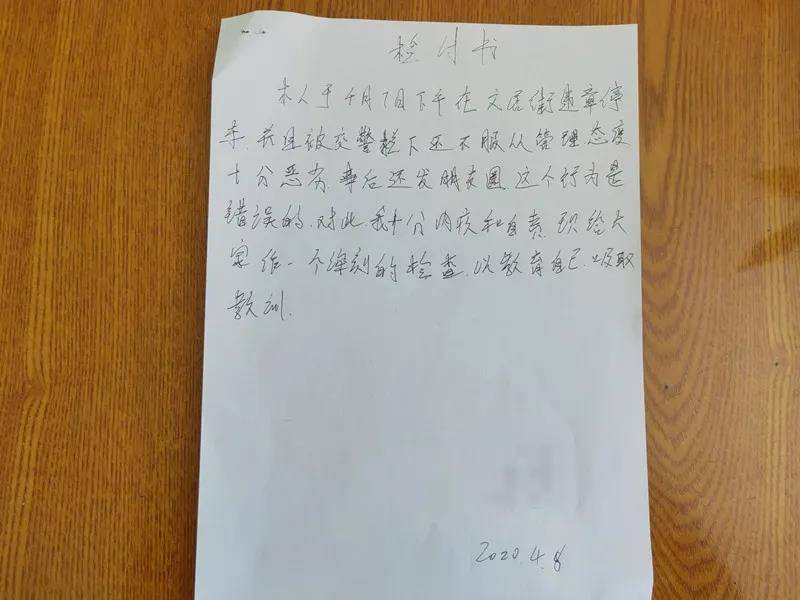 检付书
本人于4月7日下午在文居街违章停
车.并且被交警拦下还不服从管理.态度
十分恶劣.事后还发朋友圈.这个行为是
错误的.对此.我十分内疚和自责.现给大
家作一个深刻的检查.以教育自己.吸取
教训.
2020.4.8